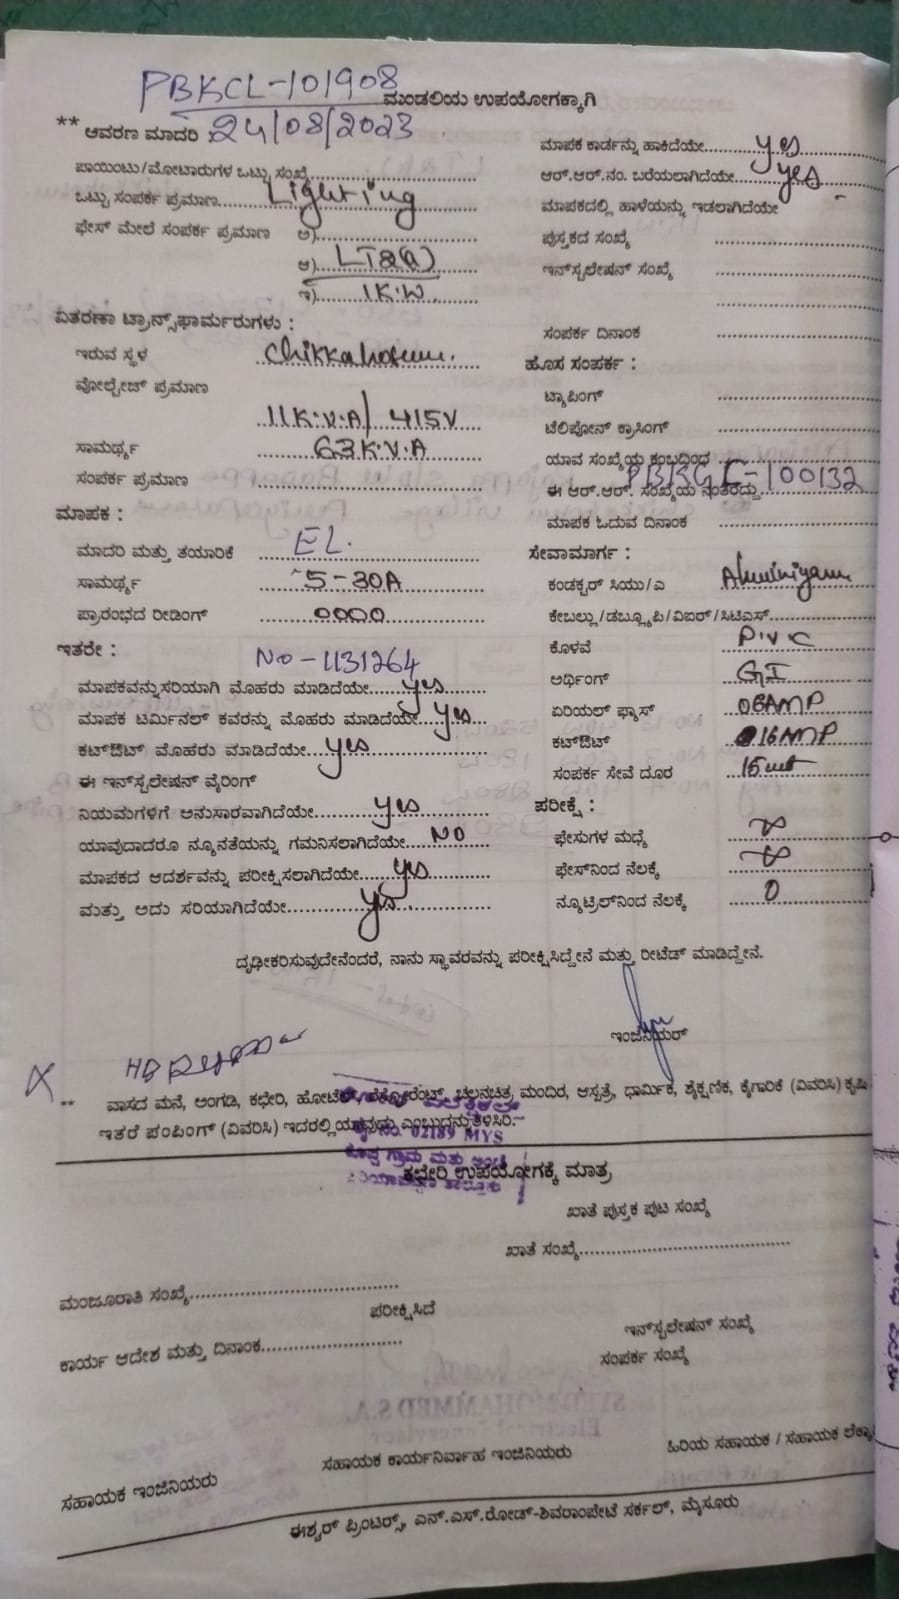 PBKCL-101908
ಮಂಡಲಿಯ ಉಪಯೋಗಕ್ಕಾಗಿ
** ಆವರಣ ಮಾದರಿ : 24/08/2023
ಪಾಯಿಂಟು/ಮೋಟಾರುಗಳ ಒಟ್ಟು ಸಂಖ್ಯೆ
ಒಟ್ಟು ಸಂಪರ್ಕ ಪ್ರಮಾಣ Lighting
ಫೇಸ್ ಮೇಲೆ ಸಂಪರ್ಕ ಪ್ರಮಾಣ ಅ)
ಆ) LT2(a)
ಇ) 1K.W
ವಿತರಣಾ ಟ್ರಾನ್ಸ್‌ಫಾರ್ಮರುಗಳು :
ಇರುವ ಸ್ಥಳ
ವೋಲ್ಟೇಜ್ ಪ್ರಮಾಣ
11K.V.A/ 415V
ಸಾಮರ್ಥ್ಯ 63K.V.A
ಸಂಪರ್ಕ ಪ್ರಮಾಣ
ಮಾಪಕ :
ಮಾದರಿ ಮತ್ತು ತಯಾರಿಕೆ EL.
ಸಾಮರ್ಥ್ಯ 5-30A
ಪ್ರಾರಂಭದ ರೀಡಿಂಗ್ 0000
ಇತರೇ :
NO-1131264
ಮಾಪಕವನ್ನು ಸರಿಯಾಗಿ ಮೊಹರು ಮಾಡಿದೆಯೇ yes
ಮಾಪಕ ಟರ್ಮಿನಲ್ ಕವರನ್ನು ಮೊಹರು ಮಾಡಿದೆಯೇ yes
ಕಟ್‌ಔಟ್ ಮೊಹರು ಮಾಡಿದೆಯೇ yes
ಈ ಇನ್‌ಸ್ಟಲೇಷನ್ ವೈರಿಂಗ್
ನಿಯಮಗಳಿಗೆ ಅನುಸಾರವಾಗಿದೆಯೇ yes
ಯಾವುದಾದರೂ ನ್ಯೂನತೆಯನ್ನು ಗಮನಿಸಲಾಗಿದೆಯೇ NO
ಮಾಪಕದ ಆದರ್ಶವನ್ನು ಪರೀಕ್ಷಿಸಲಾಗಿದೆಯೇ yes
ಮತ್ತು ಅದು ಸರಿಯಾಗಿದೆಯೇ yes
ಮಾಪಕ ಕಾರ್ಡನ್ನು ಹಾಕಿದೆಯೇ yes
ಆರ್.ಆರ್.ನಂ. ಬರೆಯಲಾಗಿದೆಯೇ yes
ಮಾಪಕದಲ್ಲಿ ಹಾಳೆಯನ್ನು ಇಡಲಾಗಿದೆಯೇ
ಪುಸ್ತಕದ ಸಂಖ್ಯೆ
ಇನ್‌ಸ್ಟಲೇಷನ್ ಸಂಖ್ಯೆ
ಸಂಪರ್ಕ ದಿನಾಂಕ
ಹೊಸ ಸಂಪರ್ಕ :
ಟ್ಯಾಪಿಂಗ್
ಟೆಲಿಫೋನ್ ಕ್ರಾಸಿಂಗ್
ಯಾವ ಸಂಖ್ಯೆಯ ಕಂಬದಿಂದ
ಈ ಆರ್.ಆರ್. ಸಂಖ್ಯೆಯ ನಂತರದ್ದು
ಮಾಪಕ ಓದುವ ದಿನಾಂಕ
ಸೇವಾಮಾರ್ಗ :
ಕಂಡಕ್ಟರ್ ಸಿಯು/ಎ
ಕೇಬಲ್ಲು/ಡಬ್ಲ್ಯೂಪಿ/ವಿಐಆರ್/ಸಿಟಿಎಸ್
ಕೊಳವೆ P.V.C
ಅರ್ಥಿಂಗ್ GI
ಏರಿಯಲ್ ಫ್ಯೂಸ್ 06AMP
ಕಟ್‌ಔಟ್ 16AMP
ಸಂಪರ್ಕ ಸೇವೆ ದೂರ 15mt
ಪರೀಕ್ಷೆ :
ಫೇಸುಗಳ ಮಧ್ಯೆ ∞
ಫೇಸ್‌ನಿಂದ ನೆಲಕ್ಕೆ ∞
ನ್ಯೂಟ್ರಲ್‌ನಿಂದ ನೆಲಕ್ಕೆ 0
ದೃಢೀಕರಿಸುವುದೇನೆಂದರೆ, ನಾನು ಸ್ಥಾವರವನ್ನು ಪರೀಕ್ಷಿಸಿದ್ದೇನೆ ಮತ್ತು ರೀಟೆಡ್ ಮಾಡಿದ್ದೇನೆ.
ಇಂಜಿನಿಯರ್
** ವಾಸದ ಮನೆ, ಅಂಗಡಿ, ಕಛೇರಿ, ಹೋಟೆಲ್, ರೆಸ್ಟೋರೆಂಟ್, ಚಲನಚಿತ್ರ ಮಂದಿರ, ಆಸ್ಪತ್ರೆ, ಧಾರ್ಮಿಕ, ಶೈಕ್ಷಣಿಕ, ಕೈಗಾರಿಕೆ (ವಿವರಿಸಿ) ಕೃಷಿ
ಇತರೆ ಪಂಪಿಂಗ್ (ವಿವರಿಸಿ) ಇದರಲ್ಲಿ ಯಾವುದು ಎಂಬುದನ್ನು ತಿಳಿಸಿರಿ.
02189 MYS
ಕಛೇರಿ ಉಪಯೋಗಕ್ಕೆ ಮಾತ್ರ
ಖಾತೆ ಪುಸ್ತಕ ಪುಟ ಸಂಖ್ಯೆ
ಖಾತೆ ಸಂಖ್ಯೆ
ಮಂಜೂರಾತಿ ಸಂಖ್ಯೆ
ಪರೀಕ್ಷಿಸಿದೆ
ಇನ್‌ಸ್ಟಲೇಷನ್ ಸಂಖ್ಯೆ
ಕಾರ್ಯ ಆದೇಶ ಮತ್ತು ದಿನಾಂಕ
ಸಂಪರ್ಕ ಸಂಖ್ಯೆ
ಸಹಾಯಕ ಇಂಜಿನಿಯರು
ಸಹಾಯಕ ಕಾರ್ಯನಿರ್ವಾಹ ಇಂಜಿನಿಯರು
ಹಿರಿಯ ಸಹಾಯಕ / ಸಹಾಯಕ
ಈಶ್ವರ್ ಪ್ರಿಂಟರ್ಸ್, ಎನ್.ಎಸ್.ರೋಡ್-ಶಿವರಾಂಪೇಟೆ ಸರ್ಕಲ್, ಮೈಸೂರು